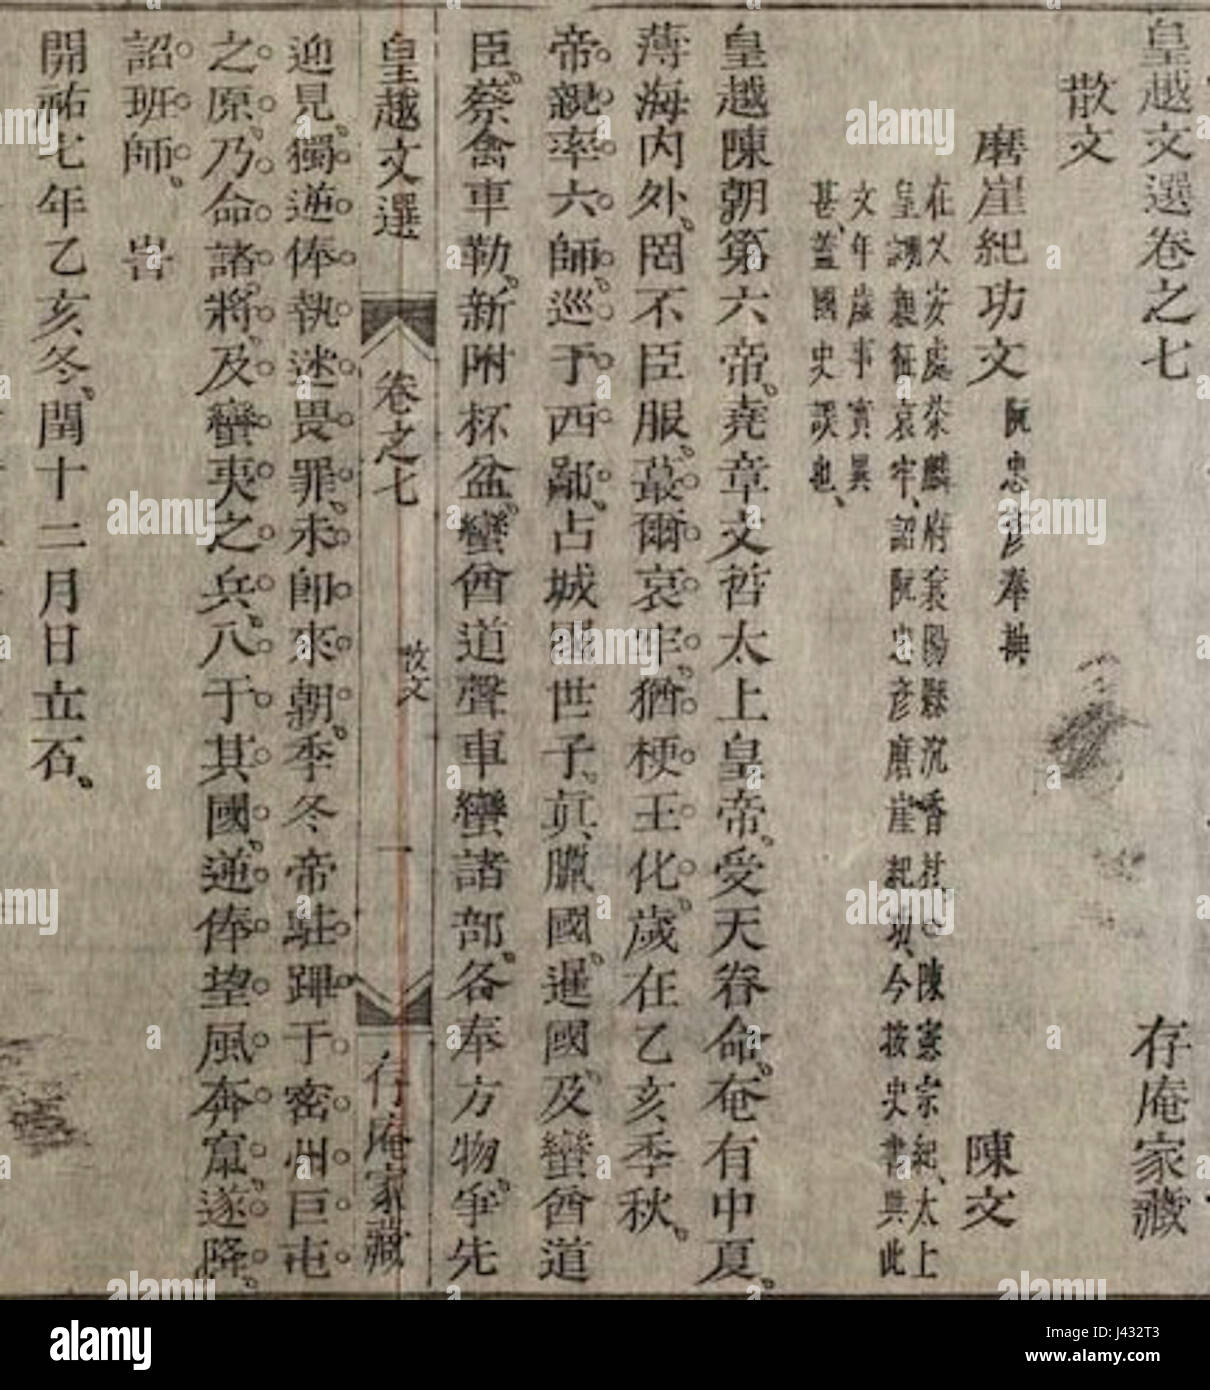 皇越文選卷之七
存庵家藏
散文
磨崖紀功文
阮忠彥奉撰
陳文
在乂安處茶麟府襄陽縣沉香社○陳憲宗紀太上
皇親征哀牢、詔阮忠彥磨崖紀功、今按史書與此
文年歲事實異
甚、蓋國史誤也、
皇越陳朝第六帝。堯章文哲太上皇帝。受天眷命。奄有中夏。
薄海内外。罔不臣服。蕞爾哀牢。猶梗王化。歲在乙亥季秋。
帝親率六師。巡于西鄙。占城國世子、眞臘國。暹國、及蠻酋道
臣。蔡禽車勒。新附杯盆。蠻酋道聲車蠻諸部。各奉方物。爭先
皇越文選
卷之七
散文
一
存庵家藏
迎見。獨逆俸執迷畏罪、未即來朝。季冬帝駐蹕于密州巨屯
之原。乃命諸將、及蠻夷之兵、入于其國、逆俸望風奔竄。遂降。
詔班師。 旹
開祐七年乙亥冬、閏十二月日立石。
alamy
J432T3
www.alamy.com